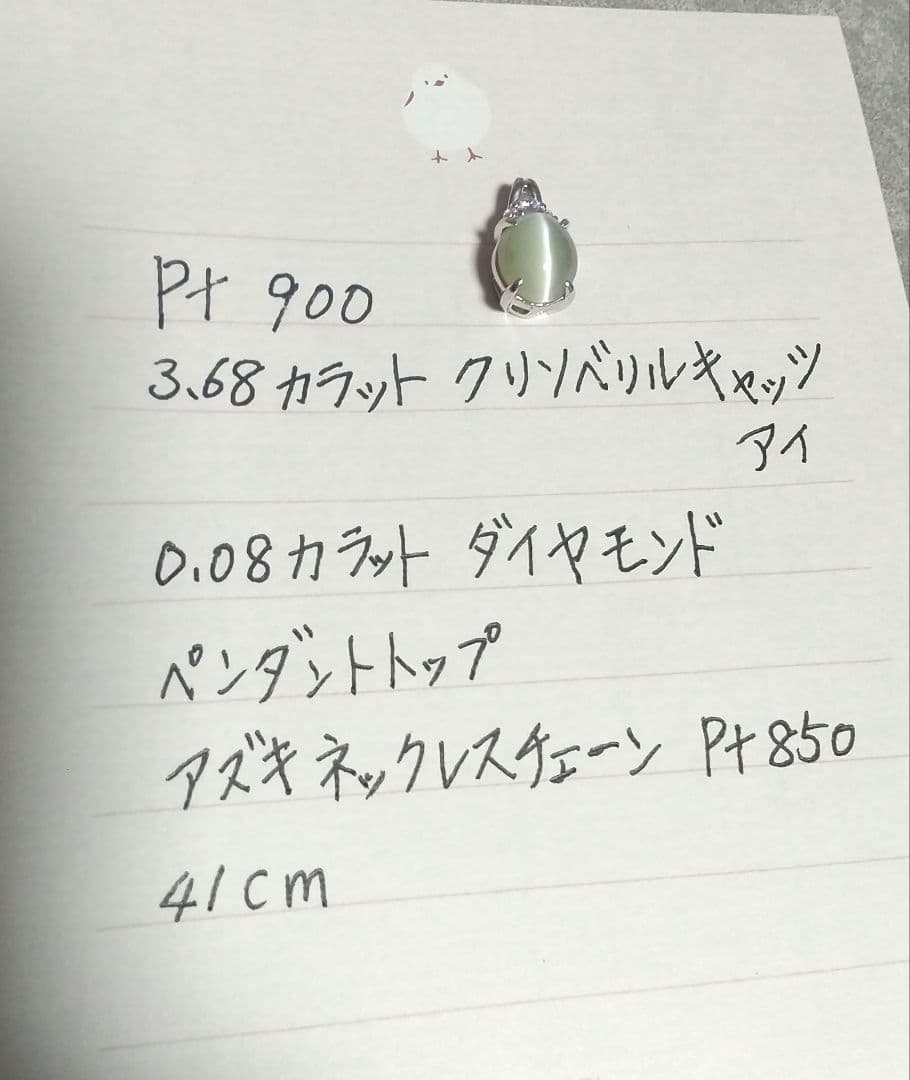 Pt 900
3.68カラット クリソベリルキャッツ
アイ
0.08カラット ダイヤモンド
ペンダントトップ
アズキネックレスチェーン Pt850
41cm